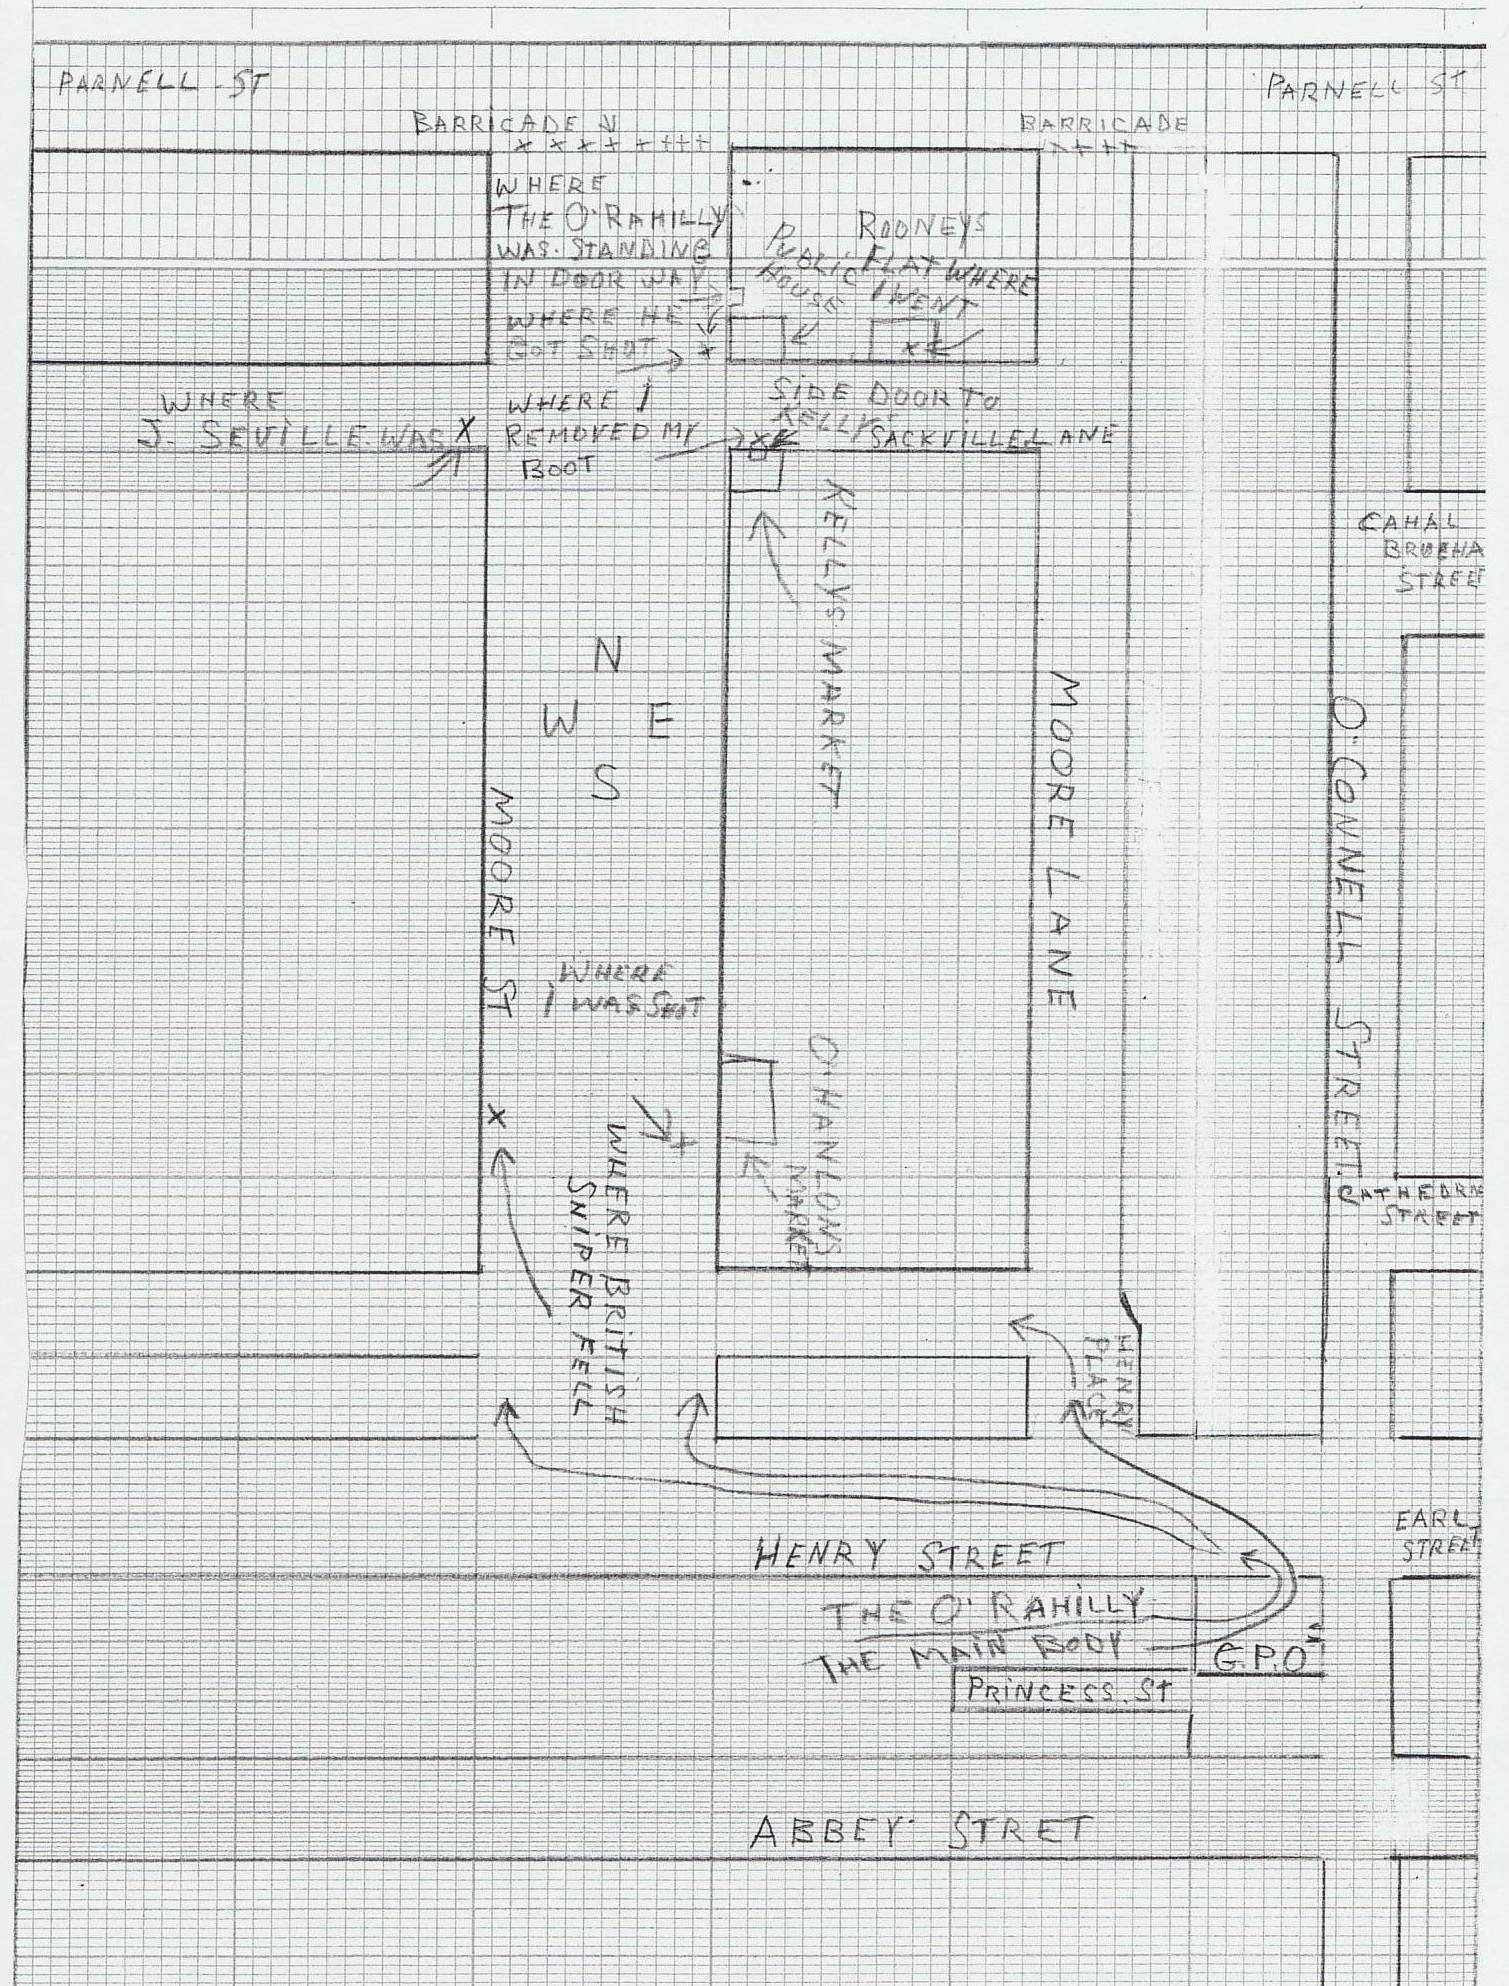 PARNELL ST
PARNELL ST
BARRICADE
BARRICADE
WHERE
THE O'RAHILLY
WAS STANDING
IN DOOR WAY
WHERE HE
GOT SHOT
PUBLIC
HOUSE
ROONEYS
FLAT WHERE
I WENT
WHERE
J. SEVILLE WAS X
WHERE I
REMOVED MY
BOOT
SIDE DOOR TO
KELLYS
SACKVILLE LANE
KELLYS MARKET
CAHAL
BRUGHA
STREE
N
W E
S
MOORE ST
MOORE LANE
O'CONNELL STREET.
WHERE
I WAS SHOT
X
O'HANLONS
MARKET
WHERE BRITISH
SNIPER FELL
CATHEDRA
STREET
HENRY
PLACE
EARL
STREET
HENRY STREET
THE O'RAHILLY
THE MAIN BODY
G.P.O
PRINCESS. St
ABBEY STRET